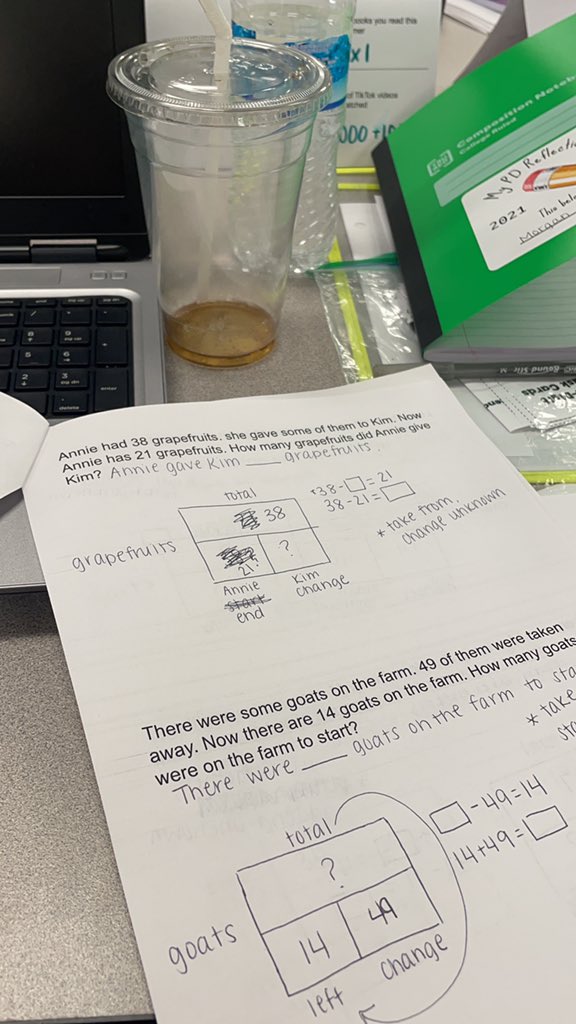 ooks you read this
x1
of TikTok videos
000 +10
Composition Noteb
College Ruled
My PD Reflecti
2021
This belo
Morgan
enter
delete
Annie had 38 grapefruits. she gave some of them to Kim. Now
Annie has 21 grapefruits. How many grapefruits did Annie give
Kim? Annie gave Kim ___ grapefruits.
total
38
grapefruits
21
?
Annie
Kim
start
change
end
38-□=21
38-21=□
*take from,
change unknown
There were some goats on the farm. 49 of them were taken
away. Now there are 14 goats on the farm. How many goats
were on the farm to start?
There were ___ goats on the farm to sta
*take
sta
total
?
goats
14
49
left
change
□-49=14
14+49=□